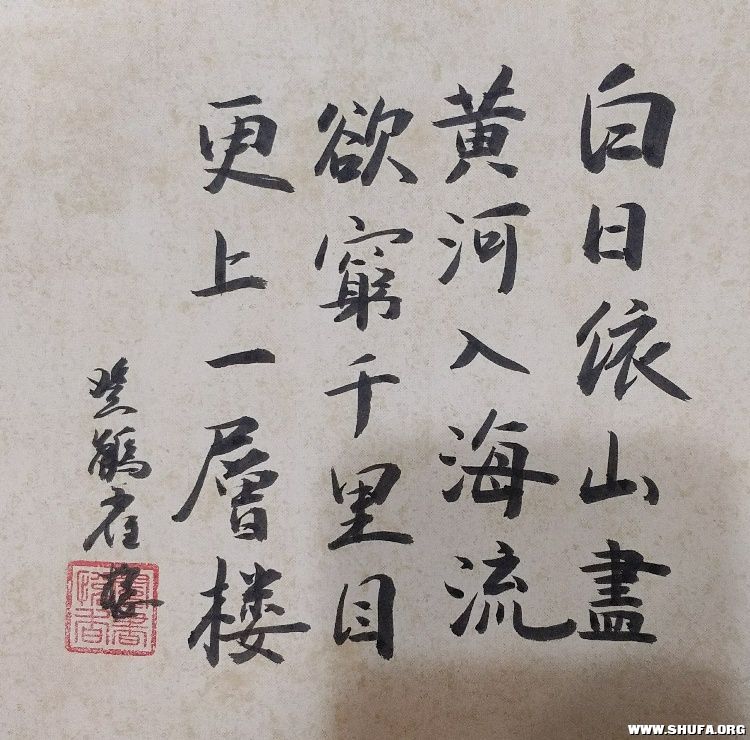 白日依山盡
黄河入海流
欲窮千里目
更上一層楼
登鸛雀楼
WWW.SHUFA.ORG